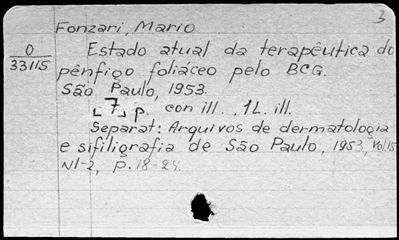 3
Fonzari, Mario
O
33115
Estado atual da terapêutica do
pênfigo foliáceo pelo BCG.
São Paulo, 1953.
[7] p. con ill., 1L. ill.
Separat: Arquivos de dermatologia
e sifiligrafia de São Paulo, 1953, Vol.15
N1-2, p.18-24.